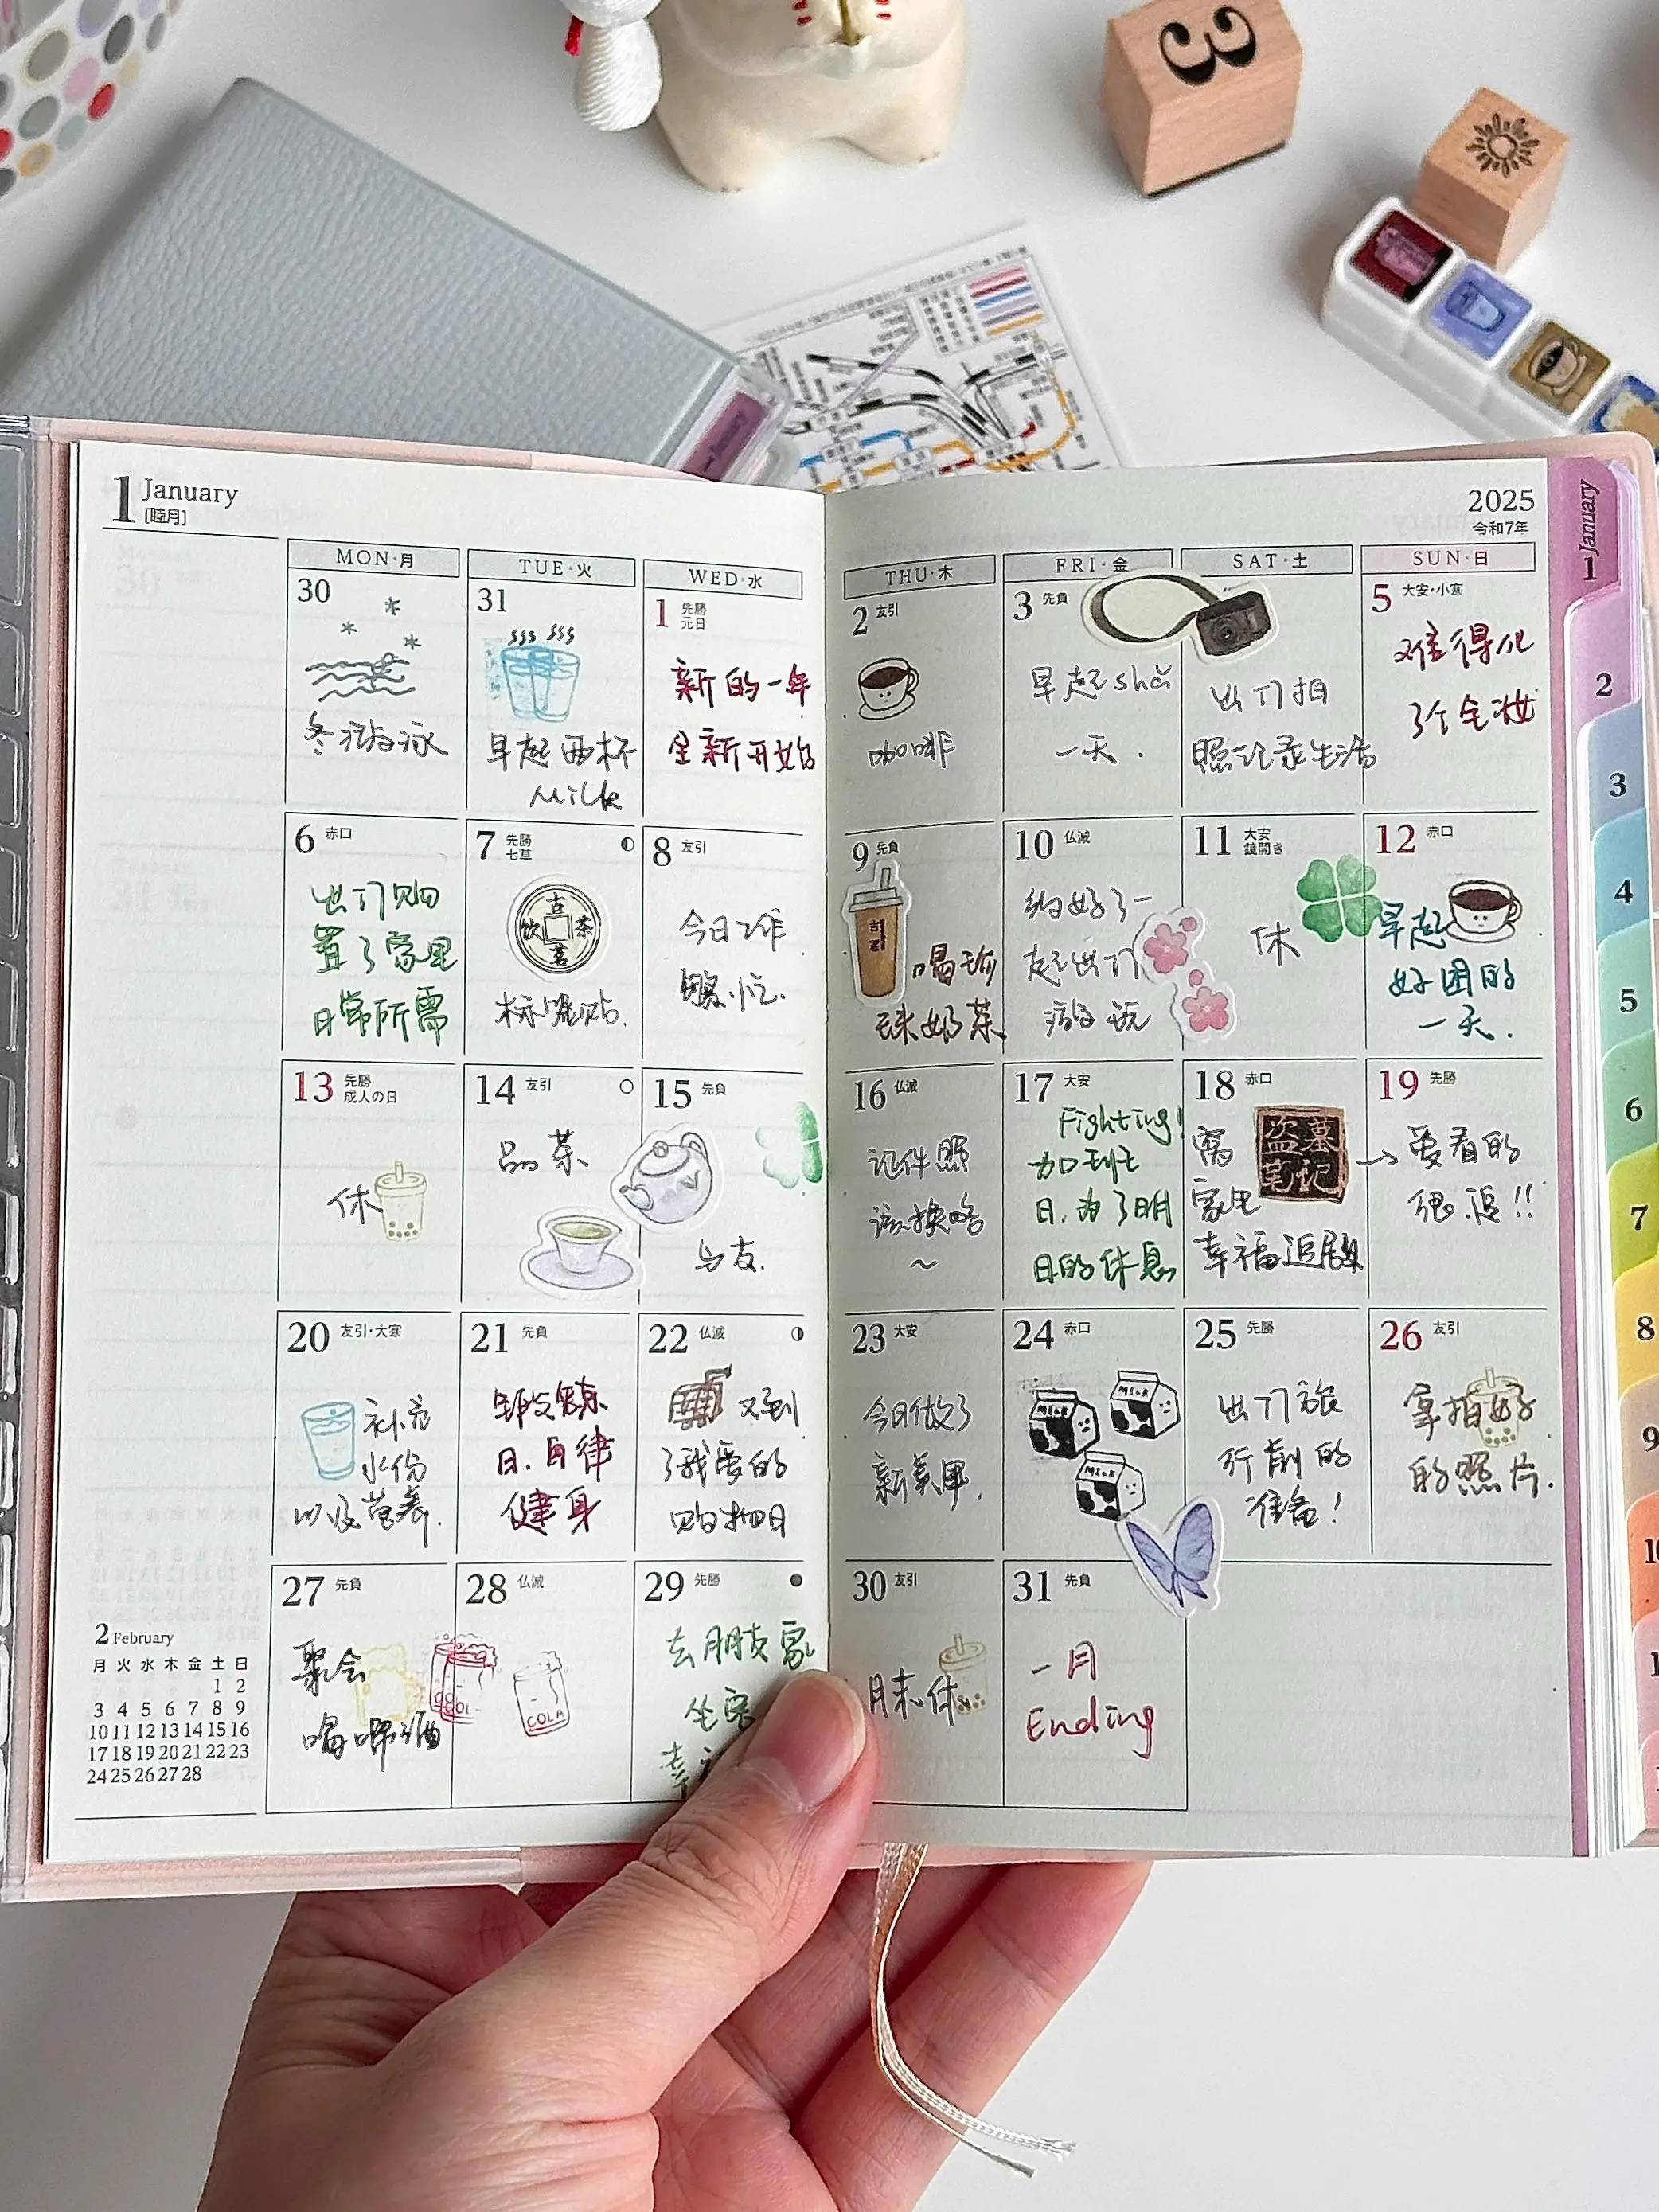 1 January
[睦月]
2025
令和7年
MON・月
TUE・火
WED・水
THU・木
FRI・金
SAT・土
SUN・日
30
冬游泳
31
早起两杯
Milk
1 先勝
元日
新的一年
全新开始
2 友引
咖啡
3 先負
早起shǎ
一天.
出门拍
照记录生活
5 大安・小寒
难得化
了个全妆
6 赤口
出门购
置了家里
日常所需
7 先勝
七草
古
饮 茶
茗
标签贴.
8 友引
今日工作
繁忙.
9 先負
古茗
喝珍
珠奶茶
10 仏滅
约好了一
起出门
游玩
11 大安
鏡開き
休
12 赤口
早起
好困的
一天.
13 先勝
成人の日
休
14 友引
品茶
15 先負
与友.
16 仏滅
证件照
该换咯
~
17 大安
Fighting!
加班
日.为了明
日的休息
18 赤口
盗墓
笔记
窝
家里
幸福追剧
→
19 先勝
爱看的
很.追!!
20 友引・大寒
补充
水份
以及营养.
21 先負
锻炼
日.自律
健身
22 仏滅
又到
了我爱的
购物日
23 大安
今日做了
新美甲.
24 赤口
MILK
MILK
MILK
25 先勝
出门旅
行前的
准备!
26 友引
拿拍好
的照片.
27 先負
聚会
喝啤酒
28 仏滅
COLA
29 先勝
去朋友家
坐客
幸
30 友引
月末休
31 先負
一月
Ending
2 February
月 火 水 木 金 土 日
1 2
3 4 5 6 7 8 9
10 11 12 13 14 15 16
17 18 19 20 21 22 23
24 25 26 27 28
1 January
2
3
4
5
6
7
8
9
10
3
January